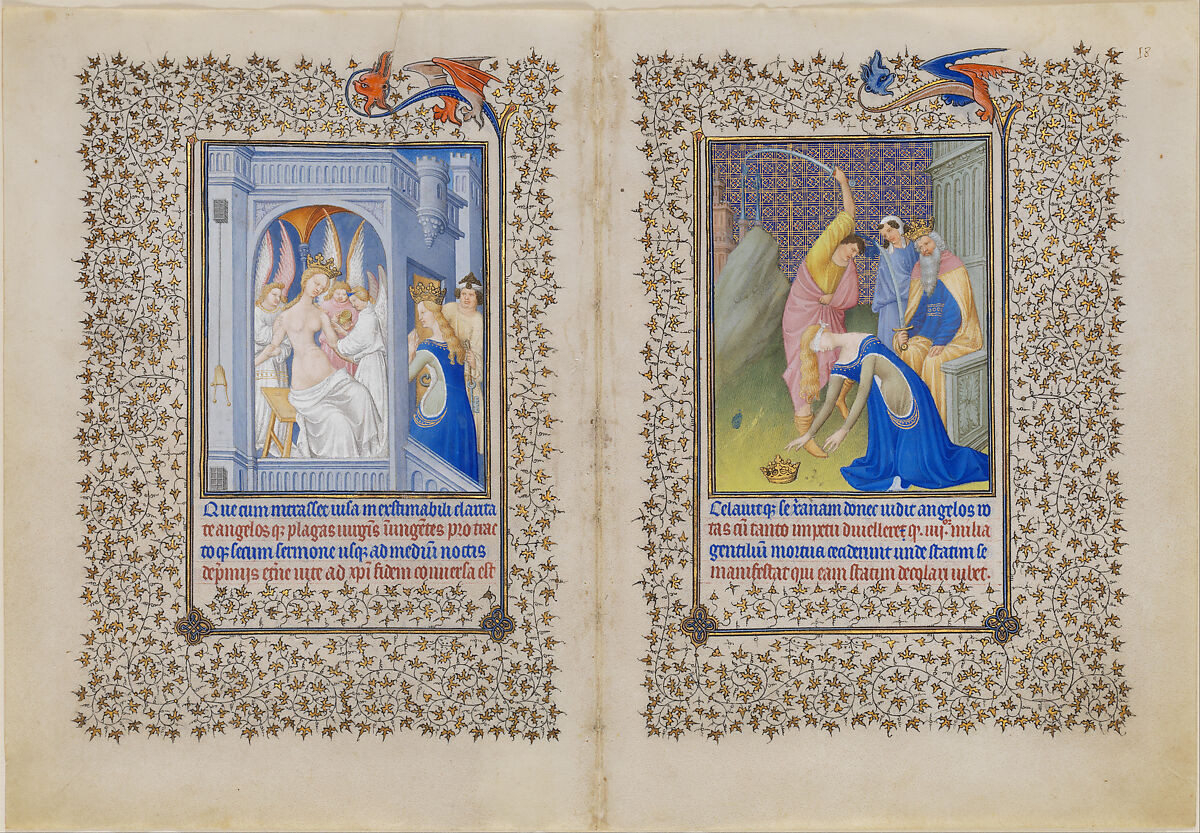 18
Que cum intrasset uisa inextimabili clarita
te angelos q; plagas uirgīs ungētes pro trac
to q; secum sermone usq; ad mediū noctis
de p̄mijs et̄ne uite ad xp̄i fidem conuersa est
Celauit q; se xānam donec uidit angelos ro
tas cū tanto impetu diuellere q; iiij.or milia
gentiliū mortua ceciderunt unde statim se
manifestat qui eam statim decolari iubet.